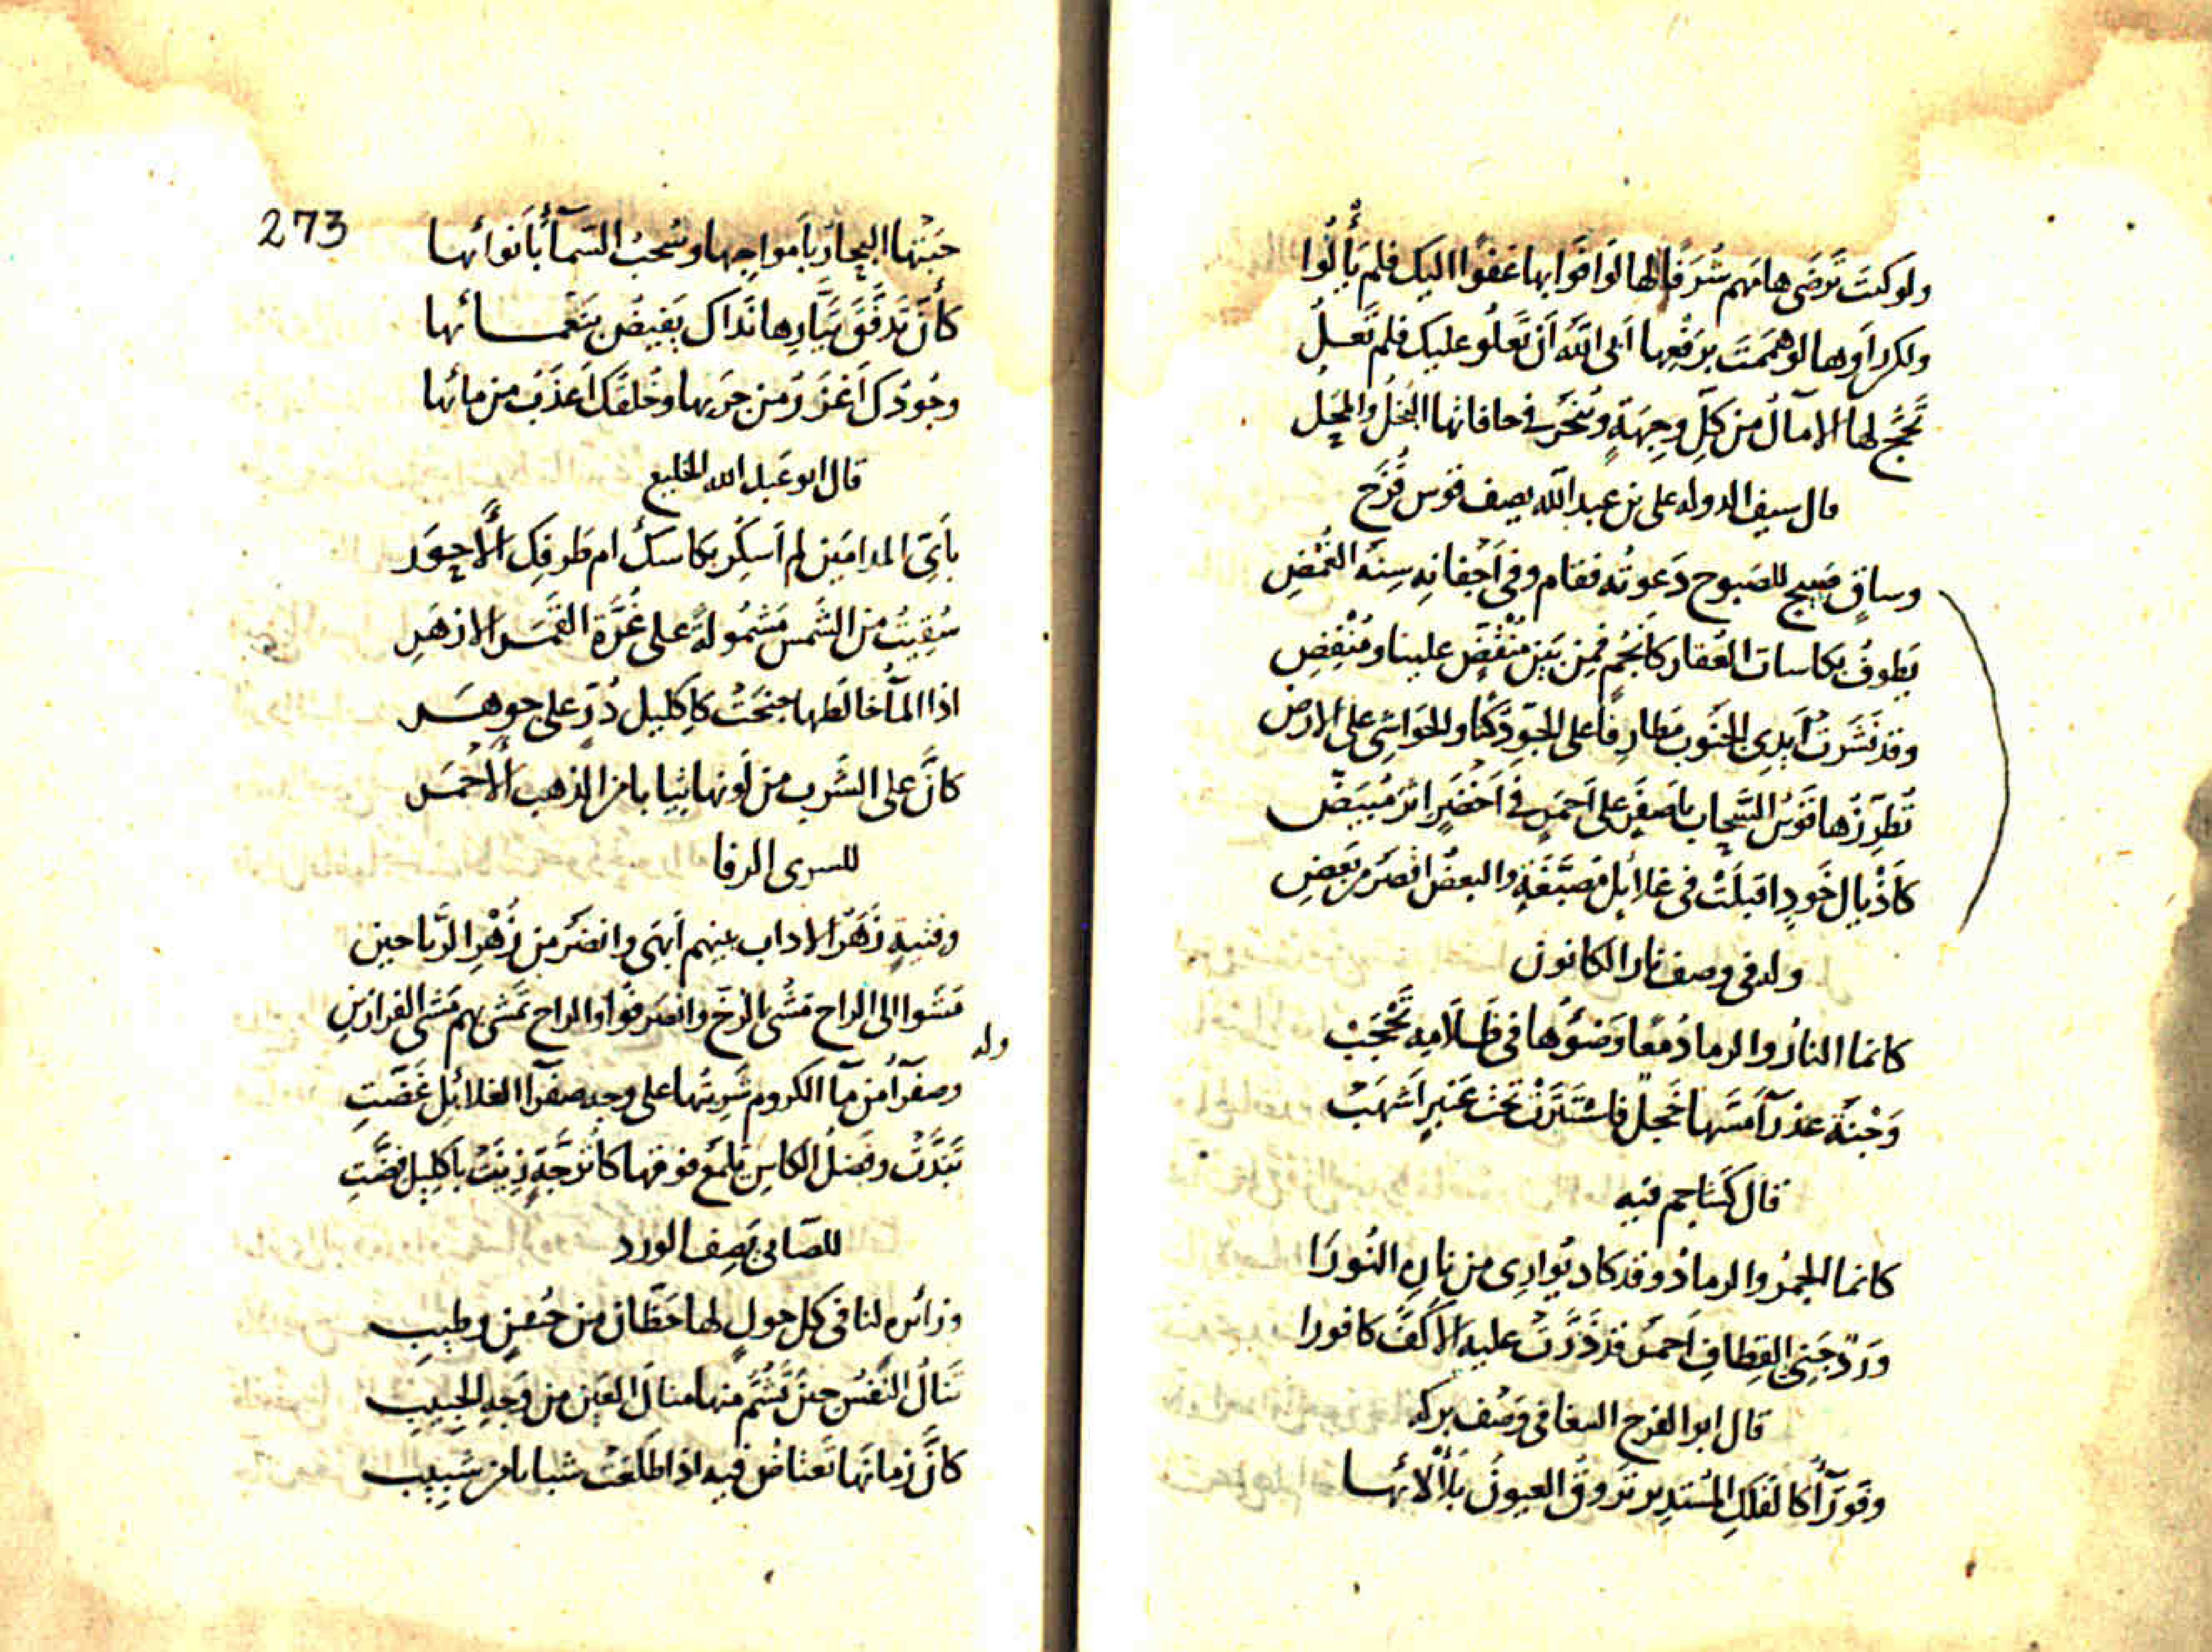 ولو كنت ترضى هامهم شرفا لها لوافوا بها عفوا اليك فلم يألوا
ولكن راوها لو هممت برفعها ابى الله ان تعلو عليك فلم تعل
تحج لها الآمال من كل وجهة وينحر في حافاتها البخل والمحل
قال سيف الدوله على بن عبد الله يصف قوس قزح
وساق صبيح للصبوح دعوته فقام وفى اجفانه سنه الغمض
يطوف بكاسات العقار كانجم فمن بين منقض علينا ومنفض
وقد نشرت ايدى الجنوب مطارفا على الجو دكنا والحواشى على الارض
تطرزها قوس السحاب باصفر على احمر في اخضر اثر مبيض
كاذيال خود اقبلت فى غلايل مصبغة والبعض اقصر من بعض
وله فى وصف نار الكانون
كانما النار والرماد معا وضوءها فى ظلامه تحجب
وجنة عذرآ مسها خجل فاستترت تحت عنبر اشهب
قال كشاجم فيه
كانما الجمر والرماد وقد كاد يوارى من ناره النورا
ورد جنى القطاف احمر قد ذرت عليه الاكف كافورا
قال ابو الفرج الببغا فى وصف بركه
وقورآ كالفلك المستدير تروق العيون بألآئها
273
حبتها البحار بامواجها وسحب السمآ بانوائها
كأن تدفق تيارها نداك يفيض بنعمائها
وجودك اغزر من جريها وخلقك اعذب من مائها
قال ابو عبد الله الخليع
باى المدامين لم اسكر بكاسك ام طرفك الاحور
سقيت من الشمس مشمولة على غرة القمر الازهر
اذا المآ خالطها جنحت كاكليل در على جوهر
كان على الشرب من لونها ثيابا من الذهب الاحمر
للسرى الرفا
وفتية زهر الاداب بينهم ابهى وانضر من زهر الرياحين
مشوا الى الراح مشى الرخ وانصرفوا والراح تمشى بهم مشى الفرازين
وله
وصفرآ من مآ الكروم شربتها على وجه صفرآ الغلائل غضت
تبدت وفضل الكاس يلمع فوقها كاترجة زينت باكليل فضت
للصابى يصف الورد
وزائره لنا فى كل حول لها حظان من حسن وطيب
تنال النفس حين تشم منها منال العين من وجه الحبيب
كان زمانها نعتاض فيه اذا طلعت شبابا من مشيب